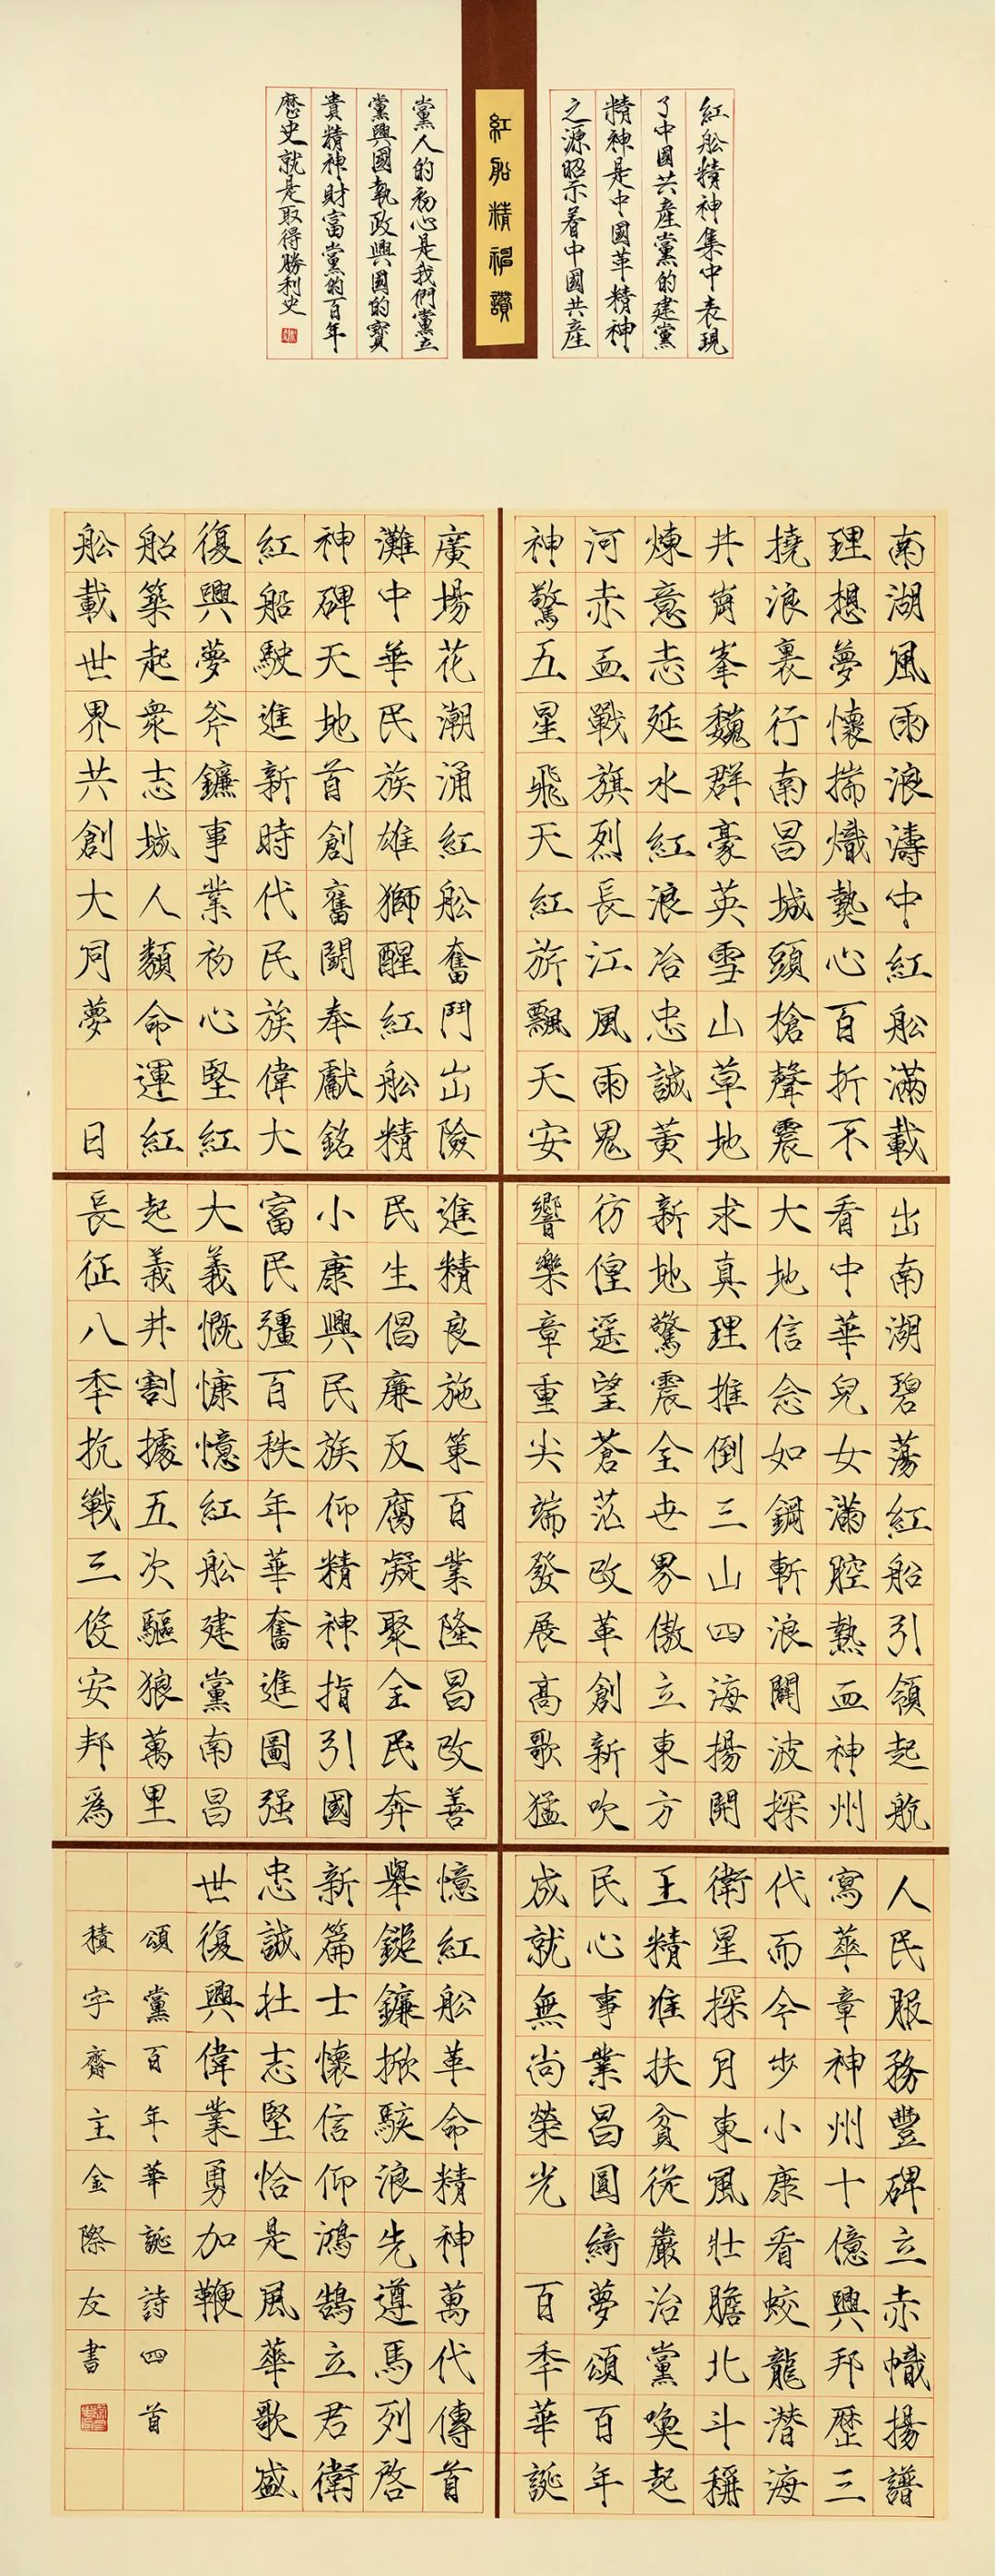 紅舩精神集中表現
了中國共產黨的建黨
精神是中國革精神
之源昭示着中國共產
紅船精神讚
黨人的初心是我們黨立
黨興國執政興國的寶
貴精神財富黨的百年
歷史就是取得勝利史
南湖風雨浪濤中紅舩滿載
理想夢懷揣熾熱心百折不
撓浪裏行南昌城頭槍聲震
井崗峯巍群豪英雪山草地
煉意志延水紅浪冶忠誠黃
河赤血戰旗烈長江風雨鬼
神驚五星飛天紅旂飄天安
廣場花潮涌紅舩奮鬥出險
灘中華民族雄獅醒紅舩精
神碑天地首創奮鬪奉獻銘
紅船駛進新時代民族偉大
復興夢斧鐮事業初心堅紅
船築起衆志城人類命運紅
舩載世界共創大同夢 日
出南湖碧蕩紅船引領起航
看中華兒女滿腔熱血神州
大地信念如鋼斬浪闢波探
求真理推倒三山四海揚開
新地驚震全世界傲立東方
彷徨遥望蒼茫改革創新吹
響樂章重尖端發展高歌猛
進精良施策百業隆昌改善
民生倡廉反腐凝聚全民奔
小康興民族仰精神指引國
富民疆百秩年華奮進圖强
大義慨慷憶紅舩建黨南昌
起義井割據五次驅狼萬里
長征八秊抗戰三役安邦爲
人民服務豐碑立赤幟揚譜
寫華章神州十億興邦歷三
代而今步小康看蛟龍潛海
衛星探月東風壯膽北斗稱
王精准扶貧從嚴治黨喚起
民心事業昌圓綺夢頌百年
成就無尚榮光 百秊華誕
憶紅舩革命精神萬代傳首
舉鎚鐮掀駭浪先遵馬列啓
新篇士懷信仰鴻鵠立君衛
忠誠壯志堅恰是風華歌盛
世復興偉業勇加鞭
頌黨百年華誕詩四首
積字齋主金際友書